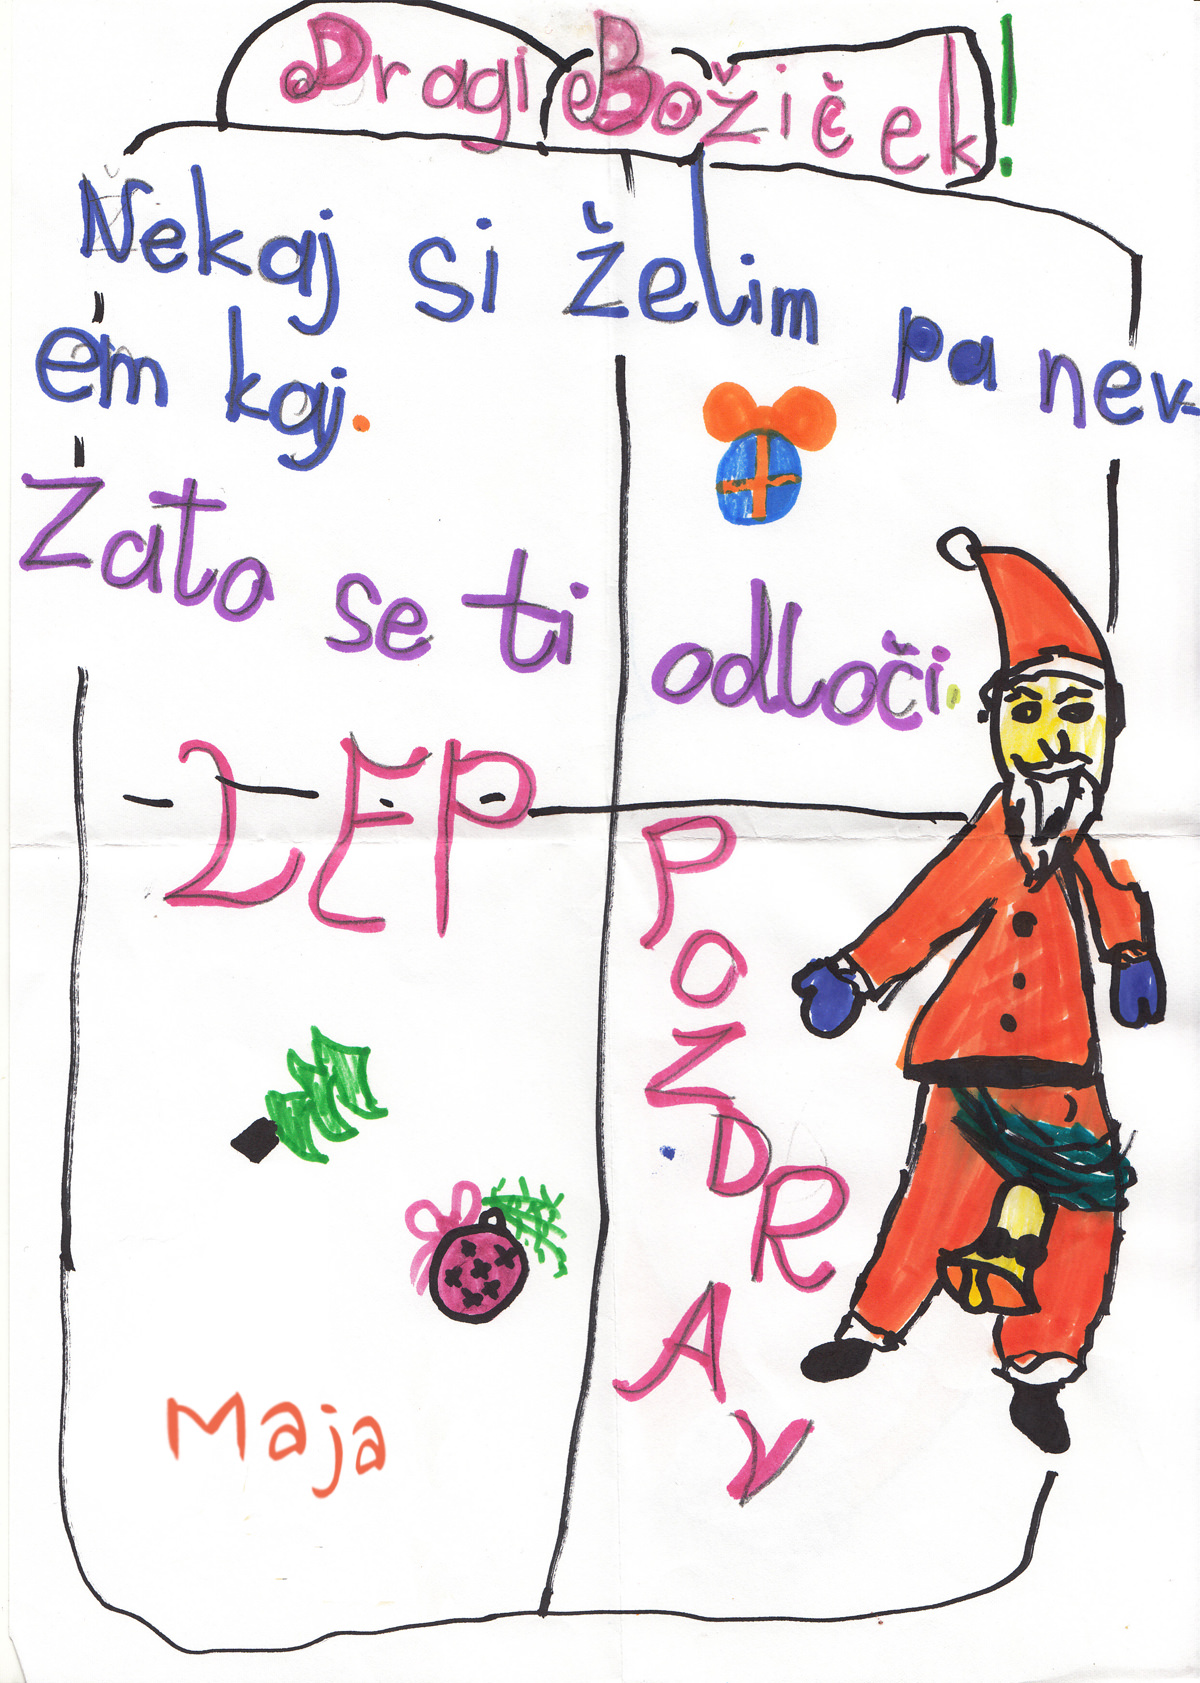 Dragi Božiček!
Nekaj si želim pa nev-
em kaj.
Zato se ti odloči.
LEP
POZDRAV
Maja